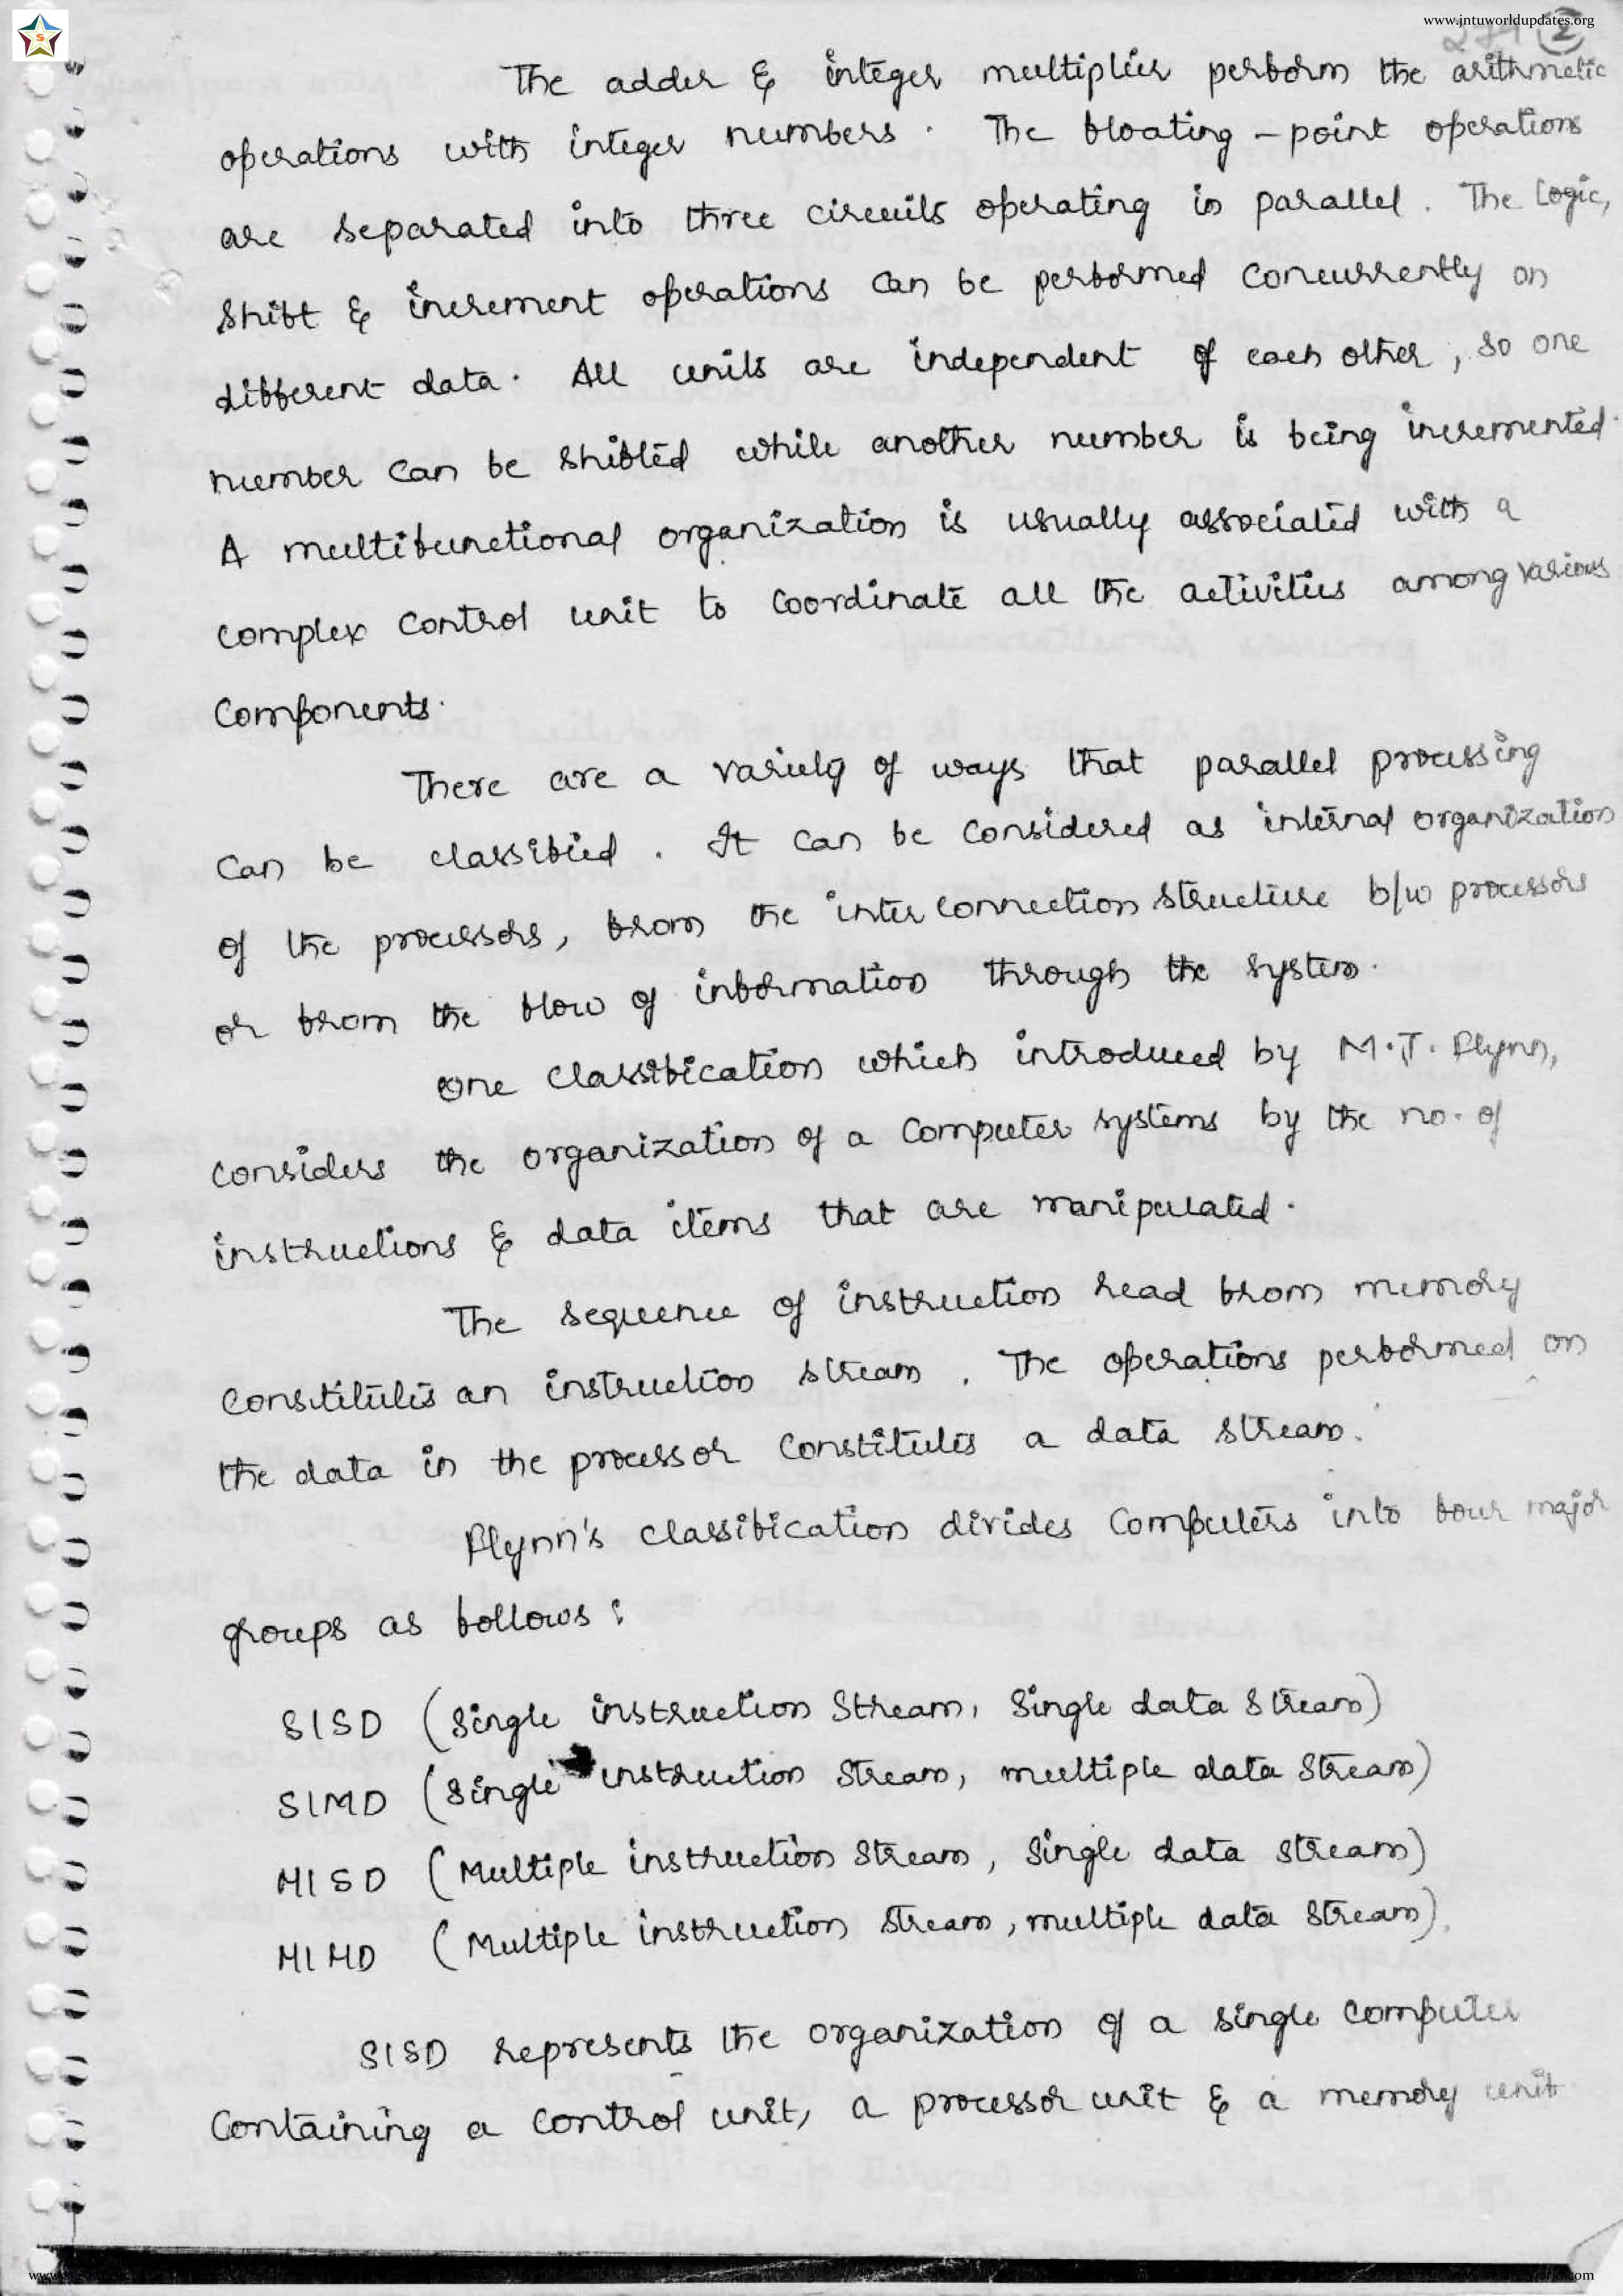 www.jntuworldupdates.org
2
The adder & integer multiplier perform the arithmetic
operations with integer numbers. The floating-point operations
are separated into three circuits operating in parallel. The logic,
shift & increment operations can be performed concurrently on
different data. All units are independent of each other, so one
number can be shifted while another number is being incremented.
A multifunctional organization is usually associated with a
complex control unit to coordinate all the activities among various
components.
There are a variety of ways that parallel processing
can be classified. It can be considered as internal organization
of the processors, from the inter connection structure b/w processors
or from the flow of information through the system.
one classification which introduced by M.J. Flynn,
considers the organization of a computer systems by the no. of
instructions & data items that are manipulated.
The sequence of instruction read from memory
constitutes an instruction stream. The operations performed on
the data in the processor constitutes a data stream.
Flynn's classification divides computers into four major
groups as follows:
SISD (Single instruction stream, single data stream)
SIMD (Single instruction stream, multiple data stream)
MISD (Multiple instruction stream, single data stream)
MIMD (Multiple instruction stream, multiple data stream).
SISD represents the organization of a single computer
containing a control unit, a processor unit & a memory unit